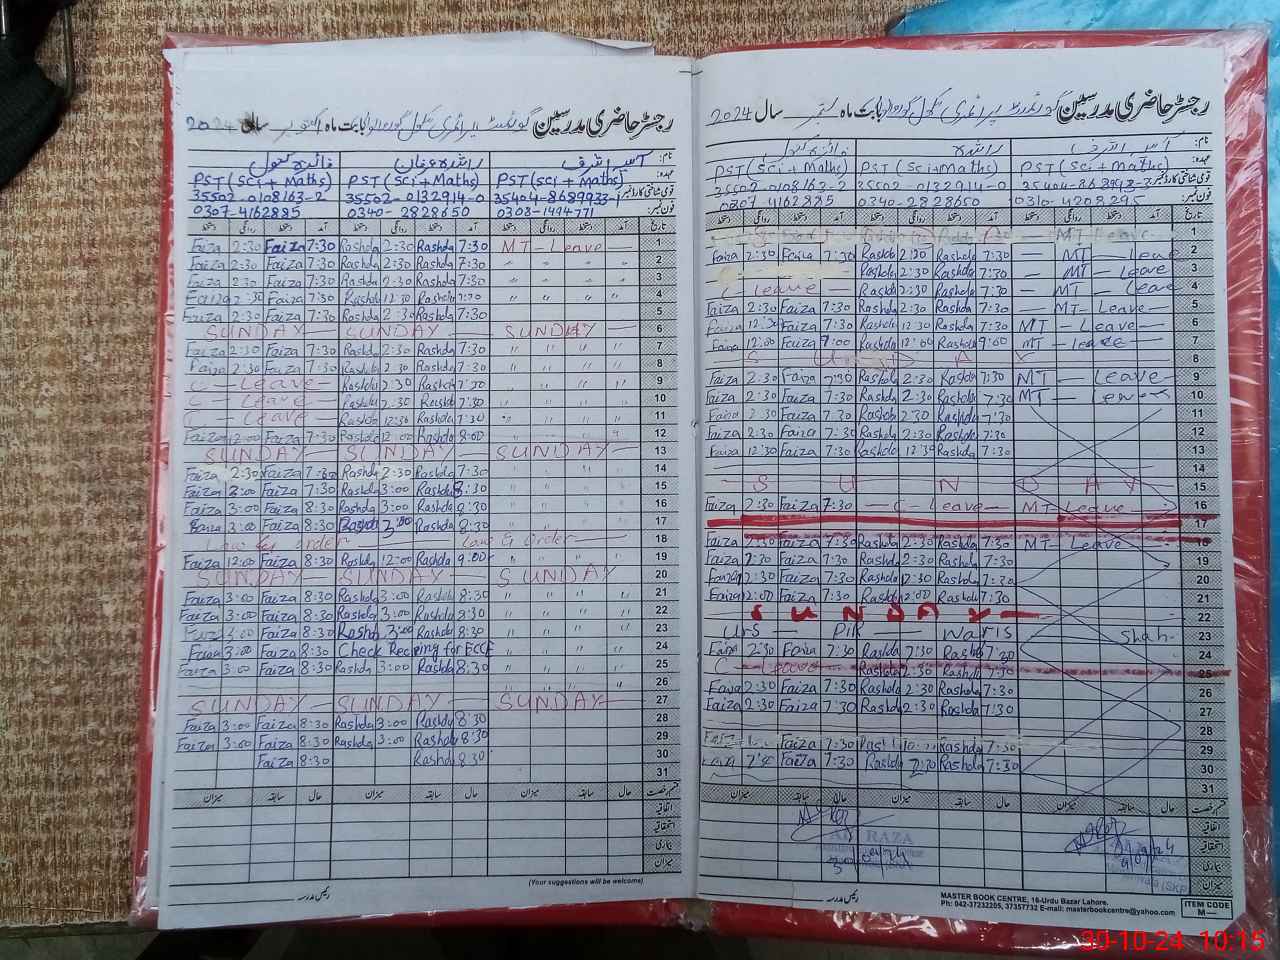 رجسٹر حاضری مدرسین گورنمنٹ پرائمری سکول بابت ماہ اکتوبر سال 2024
نام: راشدہ خان فائزہ بتول
عہدہ: PST (Sci + Maths) PST (Sci + Maths) PST (Sci + Maths)
قومی شناختی کارڈ نمبر: 35404-8689933-1 35502-0132914-0 35502-0108163-2
فون نمبر: 0308-1494771 0340-2828650 0307-4162885
تاریخ آمد دستخط روانگی دستخط آمد دستخط روانگی دستخط آمد دستخط روانگی دستخط
Faiza 2:30 Faiza 7:30 Rashda 2:30 Rashda 7:30 MT - Leave — 1
Faiza 2:30 Faiza 7:30 Rashda 2:30 Rashda 7:30 " " " 2
Faiza 2:30 Faiza 7:30 Rashda 2:30 Rashda 7:30 " " " 3
Faiza 2:30 Faiza 7:30 Rashda 12:30 Rashda 7:30 " " " 4
Faiza 2:30 Faiza 7:30 Rashda 2:30 Rashda 7:30 5
SUNDAY — SUNDAY — SUNDAY — 6
Faiza 2:30 Faiza 7:30 Rashda 2:30 Rashda 7:30 " " " 7
Faiza 2:30 Faiza 7:30 Rashda 2:30 Rashda 7:30 " " " 8
C — Leave — Rashda 2:30 Rashda 7:30 " " " 9
C — Leave — Rashda 2:30 Rashda 7:30 " " " 10
C — Leave — Rashda 12:30 Rashda 7:30 " " " 11
Faiza 12:00 Faiza 7:30 Rashda 12:00 Rashda 8:00 " 12
SUNDAY — SUNDAY — SUNDAY 13
Faiza 2:30 Faiza 7:30 Rashda 2:30 Rashda 7:30 " " " 14
Faiza 3:00 Faiza 7:30 Rashda 3:00 Rashda 8:30 " " " 15
Faiza 3:00 Faiza 7:30 Rashda 3:00 Rashda 8:30 " " " 16
Faiza 3:00 Faiza 8:30 Rashda 3:00 Rashda 8:30 " " " 17
Law & order — Law & order — 18
Faiza 12:00 Faiza 8:30 Rashda 12:00 Rashda 9:00 " " " 19
SUNDAY — SUNDAY — SUNDAY 20
Faiza 3:00 Faiza 8:30 Rashda 3:00 Rashda 8:30 " " " 21
Faiza 3:00 Faiza 8:30 Rashda 3:00 Rashda 8:30 " " " 22
Faiza 3:00 Faiza 8:30 Rashda 3:00 Rashda 8:30 " " " 23
Faiza 3:00 Faiza 8:30 Check for ECCE " " " 24
Faiza 3:00 Faiza 8:30 Rashda 3:00 Rashda 8:30 " " " 25
" " " 26
SUNDAY — SUNDAY — SUNDAY — 27
Faiza 3:00 Faiza 8:30 Rashda 3:00 Rashda 8:30 28
Faiza 3:00 Faiza 8:30 Rashda 3:00 Rashda 8:30 29
Faiza 8:30 Rashda 8:30 30
31
قسم رخصت حال سابقہ میزان حال سابقہ میزان حال سابقہ میزان
اتفاقیہ
استحقاقیہ
بیماری
میزان
(Your suggestions will be welcome)
رئیس مدرسہ
رجسٹر حاضری مدرسین گورنمنٹ پرائمری سکول بابت ماہ ستمبر سال 2024
نام: راشدہ فائزہ بتول
عہدہ: PST (Sci + Maths) PST (Sci + Maths) PST (Sci + Maths)
قومی شناختی کارڈ نمبر: 35502-0132914-0 35502-0108163-2
فون نمبر: 0310-4208295 0340-2828650 0307-4162885
تاریخ آمد دستخط روانگی دستخط آمد دستخط روانگی دستخط آمد دستخط روانگی دستخط
MT - Leave 1
Faiza 2:30 Faiza 7:30 Rashda 2:30 Rashda 7:30 — MT — Leave 2
Rashda 2:30 Rashda 7:30 — MT — Leave 3
C Leave — Rashda 2:30 Rashda 7:30 — MT — Leave 4
Faiza 2:30 Faiza 7:30 Rashda 2:30 Rashda 7:30 — MT - Leave — 5
Faiza 12:30 Faiza 7:30 Rashda 12:30 Rashda 7:30 MT — Leave — 6
Faiza 12:00 Faiza 7:00 Rashda 12:00 Rashda 9:00 MT - leave — 7
S U N D A Y 8
Faiza 2:30 Faiza 7:30 Rashda 2:30 Rashda 7:30 MT — Leave 9
Faiza 2:30 Faiza 7:30 Rashda 2:30 Rashda 7:30 MT — Leave 10
Faiza 2:30 Faiza 7:30 Rashda 2:30 Rashda 7:30 11
Faiza 2:30 Faiza 7:30 Rashda 2:30 Rashda 7:30 12
Faiza 12:30 Faiza 7:30 Rashda 12:30 Rashda 7:30 13
14
S U N D A Y 15
Faiza 2:30 Faiza 7:30 — C - Leave — MT Leave — 16
17
Faiza 2:30 Faiza 7:30 Rashda 2:30 Rashda 7:30 MT - Leave — 18
Faiza 2:30 Faiza 7:30 Rashda 2:30 Rashda 7:30 19
Faiza 12:30 Faiza 7:30 Rashda 12:30 Rashda 7:30 20
Faiza 12:00 Faiza 7:30 Rashda 12:00 Rashda 7:30 21
S U N D A Y — 22
Urs — Pir — Waris Shah 23
Faiza 2:30 Faiza 7:30 Rashda 2:30 Rashda 7:30 24
C — Leave — Rashda 2:30 Rashda 7:30 25
Faiza 2:30 Faiza 7:30 Rashda 2:30 Rashda 7:30 26
Faiza 2:30 Faiza 7:30 Rashda 2:30 Rashda 7:30 27
28
Faiza 7:30 Rashda 7:30 29
Faiza 2:30 Faiza 7:30 Rashda 2:30 Rashda 7:30 30
31
قسم رخصت حال سابقہ میزان حال سابقہ میزان حال سابقہ میزان
اتفاقیہ
استحقاقیہ
بیماری
میزان
RAZA
رئیس مدرسہ
MASTER BOOK CENTRE, 16-Urdu Bazar Lahore.
Ph: 042-37232205, 37357732 E-mail: masterbookcentre@yahoo.com
ITEM CODE
M—
30-10-24 10:15